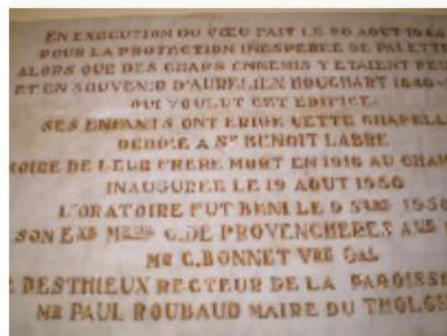 EN EXECUTION DU VŒU FAIT LE 20 AOUT 1944
POUR LA PROTECTION INESPEREE DE PALETTE
ALORS QUE DES CHARS ENNEMIS Y ETAIENT
ET EN SOUVENIR D'AURELIEN HOUCHART 1840
QUI VOULUT CET EDIFICE
SES ENFANTS ONT ERIGE CETTE CHAPELLE
DEDIEE A ST BENOIT LABRE
DE LEUR FRERE MORT EN 1916 AU
INAUGUREE LE 19 AOUT 1950
L'ORATOIRE FUT BENI LE 9 1950
SON C. DE PROVENCHERES
MR C. BONNET VRE GAL
DESTHIEUX RECTEUR DE LA
MR PAUL ROUBAUD MAIRE DU THOLO